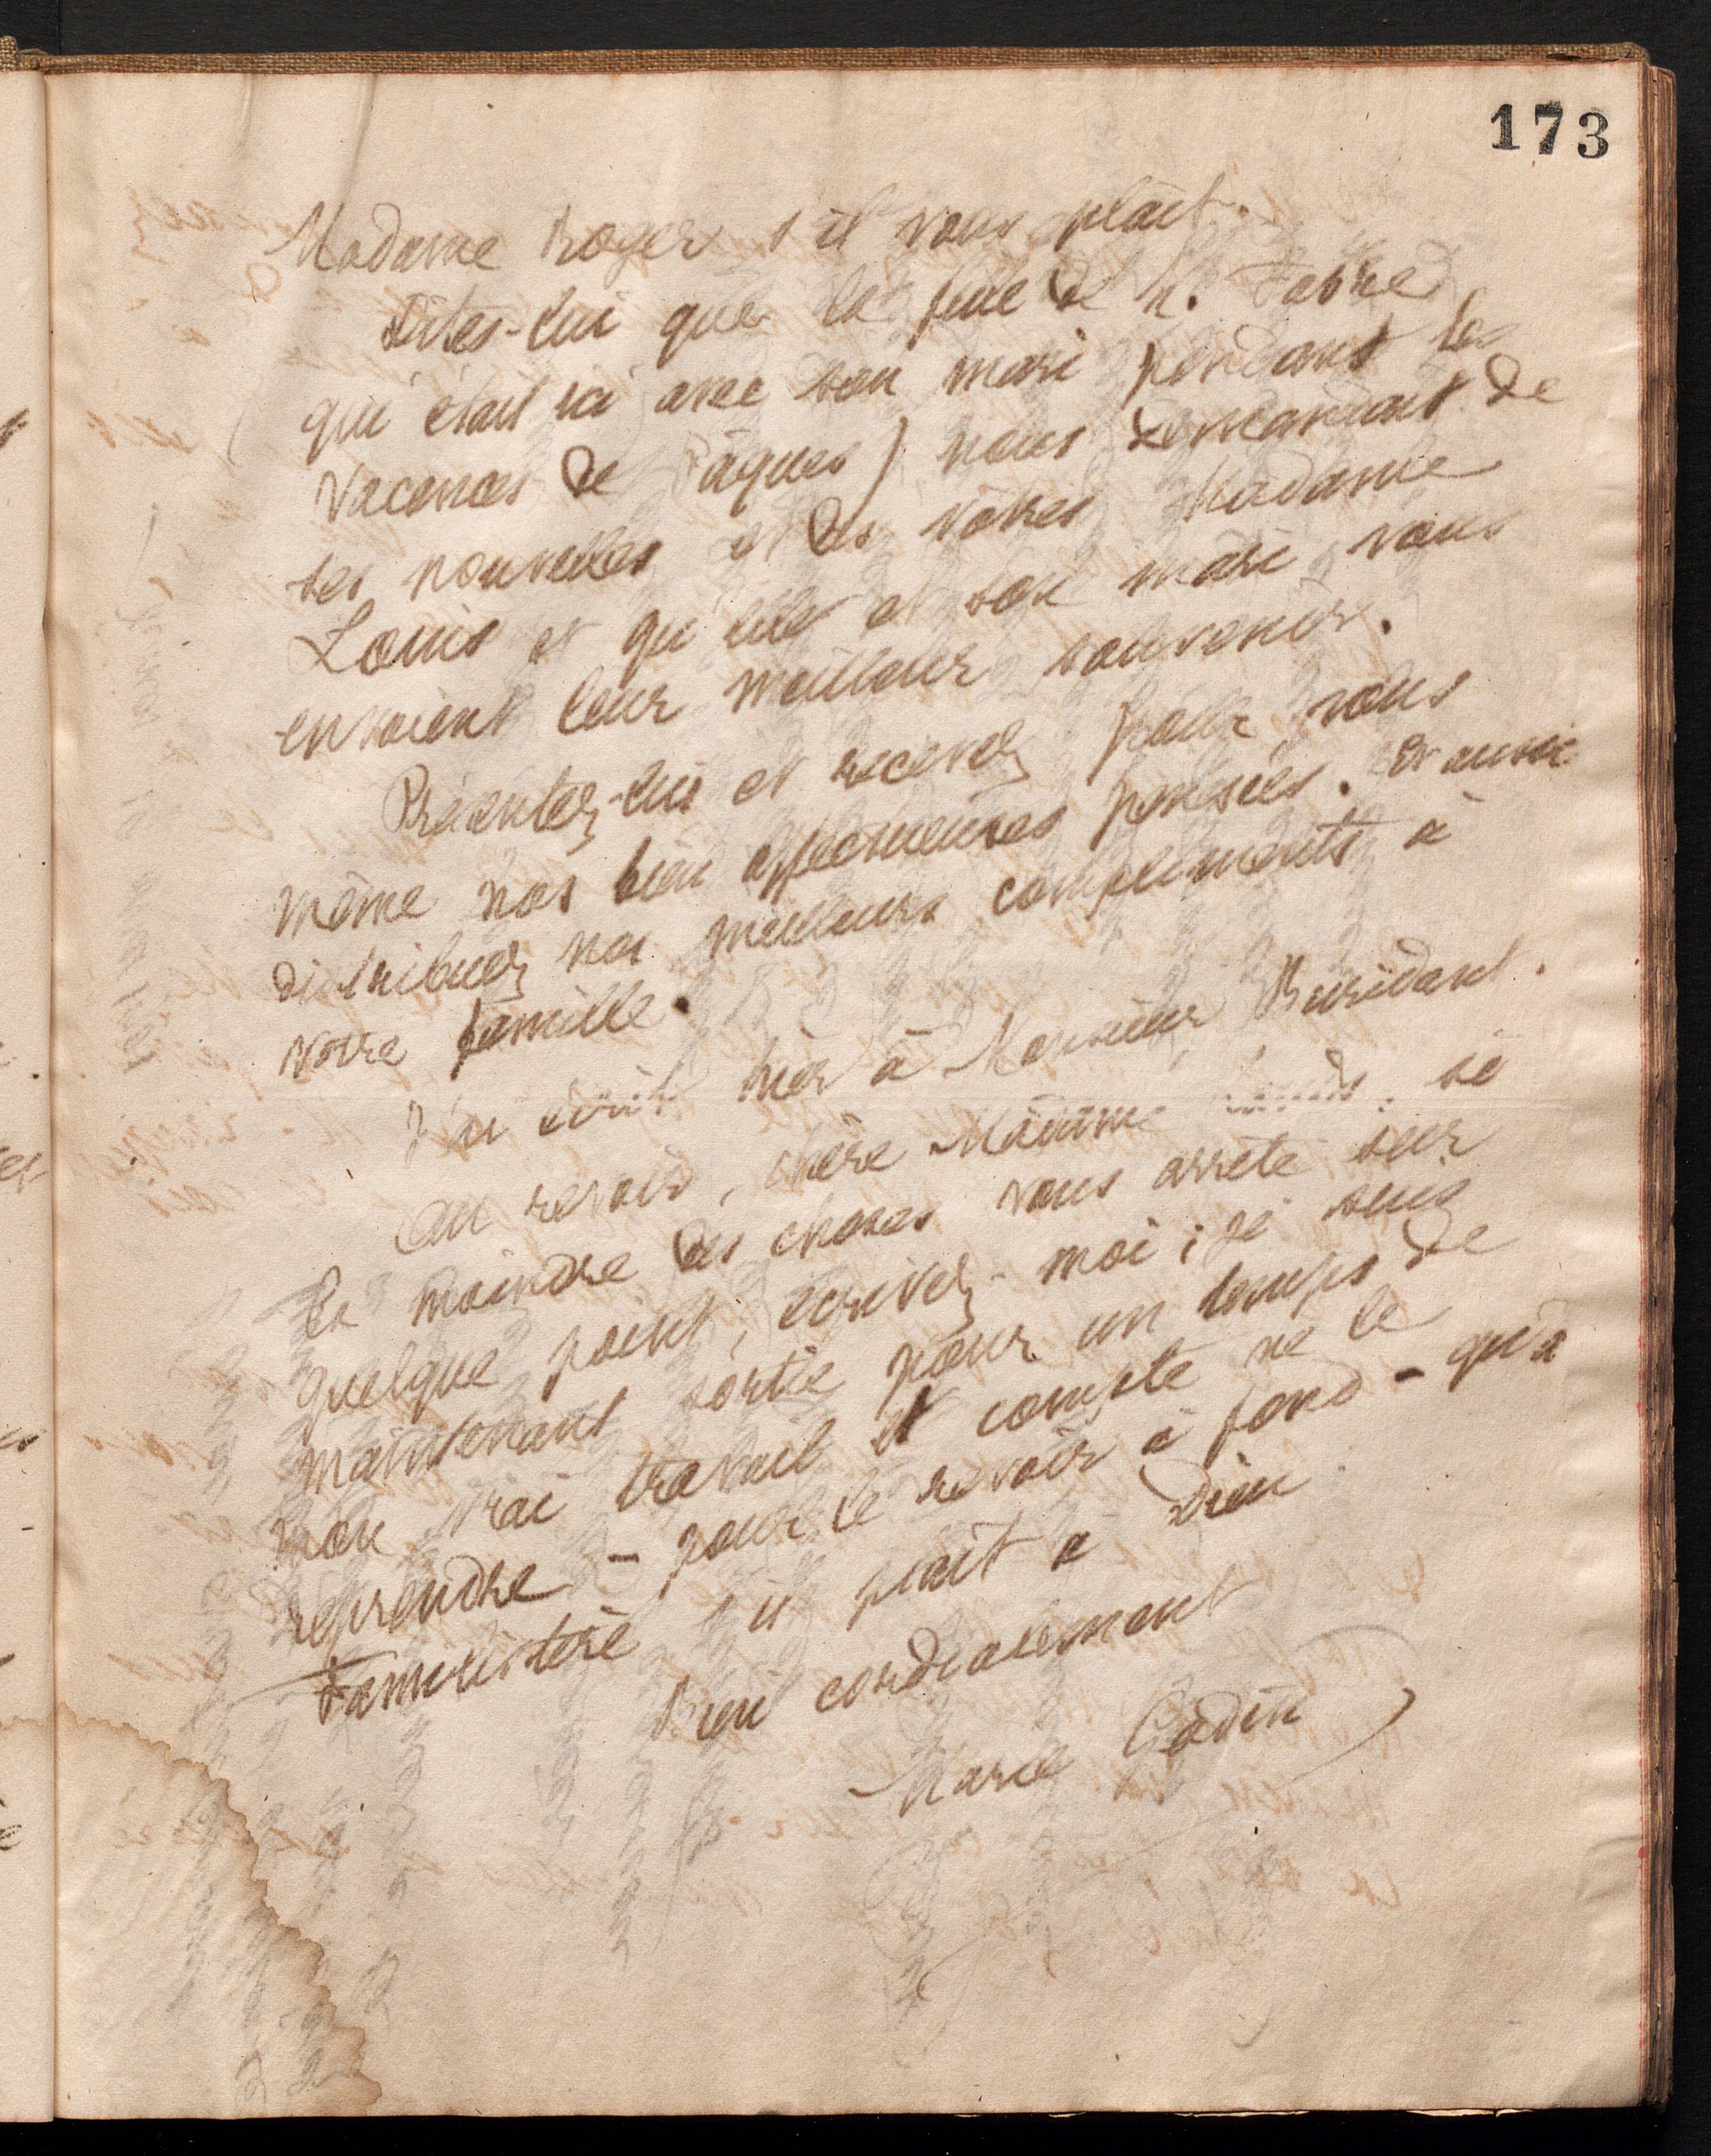 173
Madame Roger s'il vous plaît.
Dites-lui que la fille de M. Fabre
(qui était ici avec son mari pendant les
vacances de Pâques) nous demandait de
ses nouvelles et des vôtres Madame
Louis et qu'elle et son mari vous
envoient leur meilleur souvenir.
Présentez-lui et recevez pour vous
même nos bien affectueuses pensées. Et aussi
distribuez nos meilleurs compliments à
votre famille.
J'ai écrit hier à Monsieur Buridant.
Au revoir, chère Madame Louis, si
la moindre des choses vous arrête sur
quelque point, écrivez-moi; je suis
maintenant sortie pour un temps de
mon vrai travail et compte ne le
reprendre - pour le revoir à fond - qu'à
Familistère s'il plaît à Dieu
Bien cordialement
Marie Godin